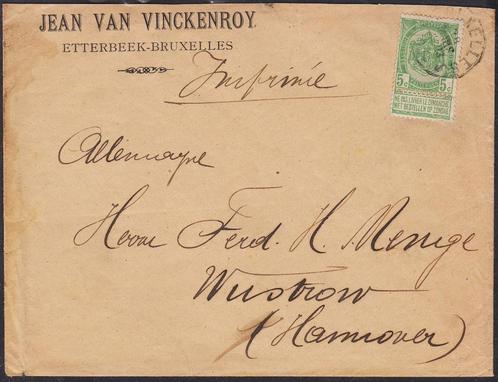 JEAN VAN VINCKENROY.
ETTERBEEK-BRUXELLES
Imprimé
5c 5c
NE PAS LIVRER LE DIMANCHE
NIET BESTELLEN OP ZONDAG
Allemagne
Ferd. H. J. Menge
Wustrow
(Hannover)